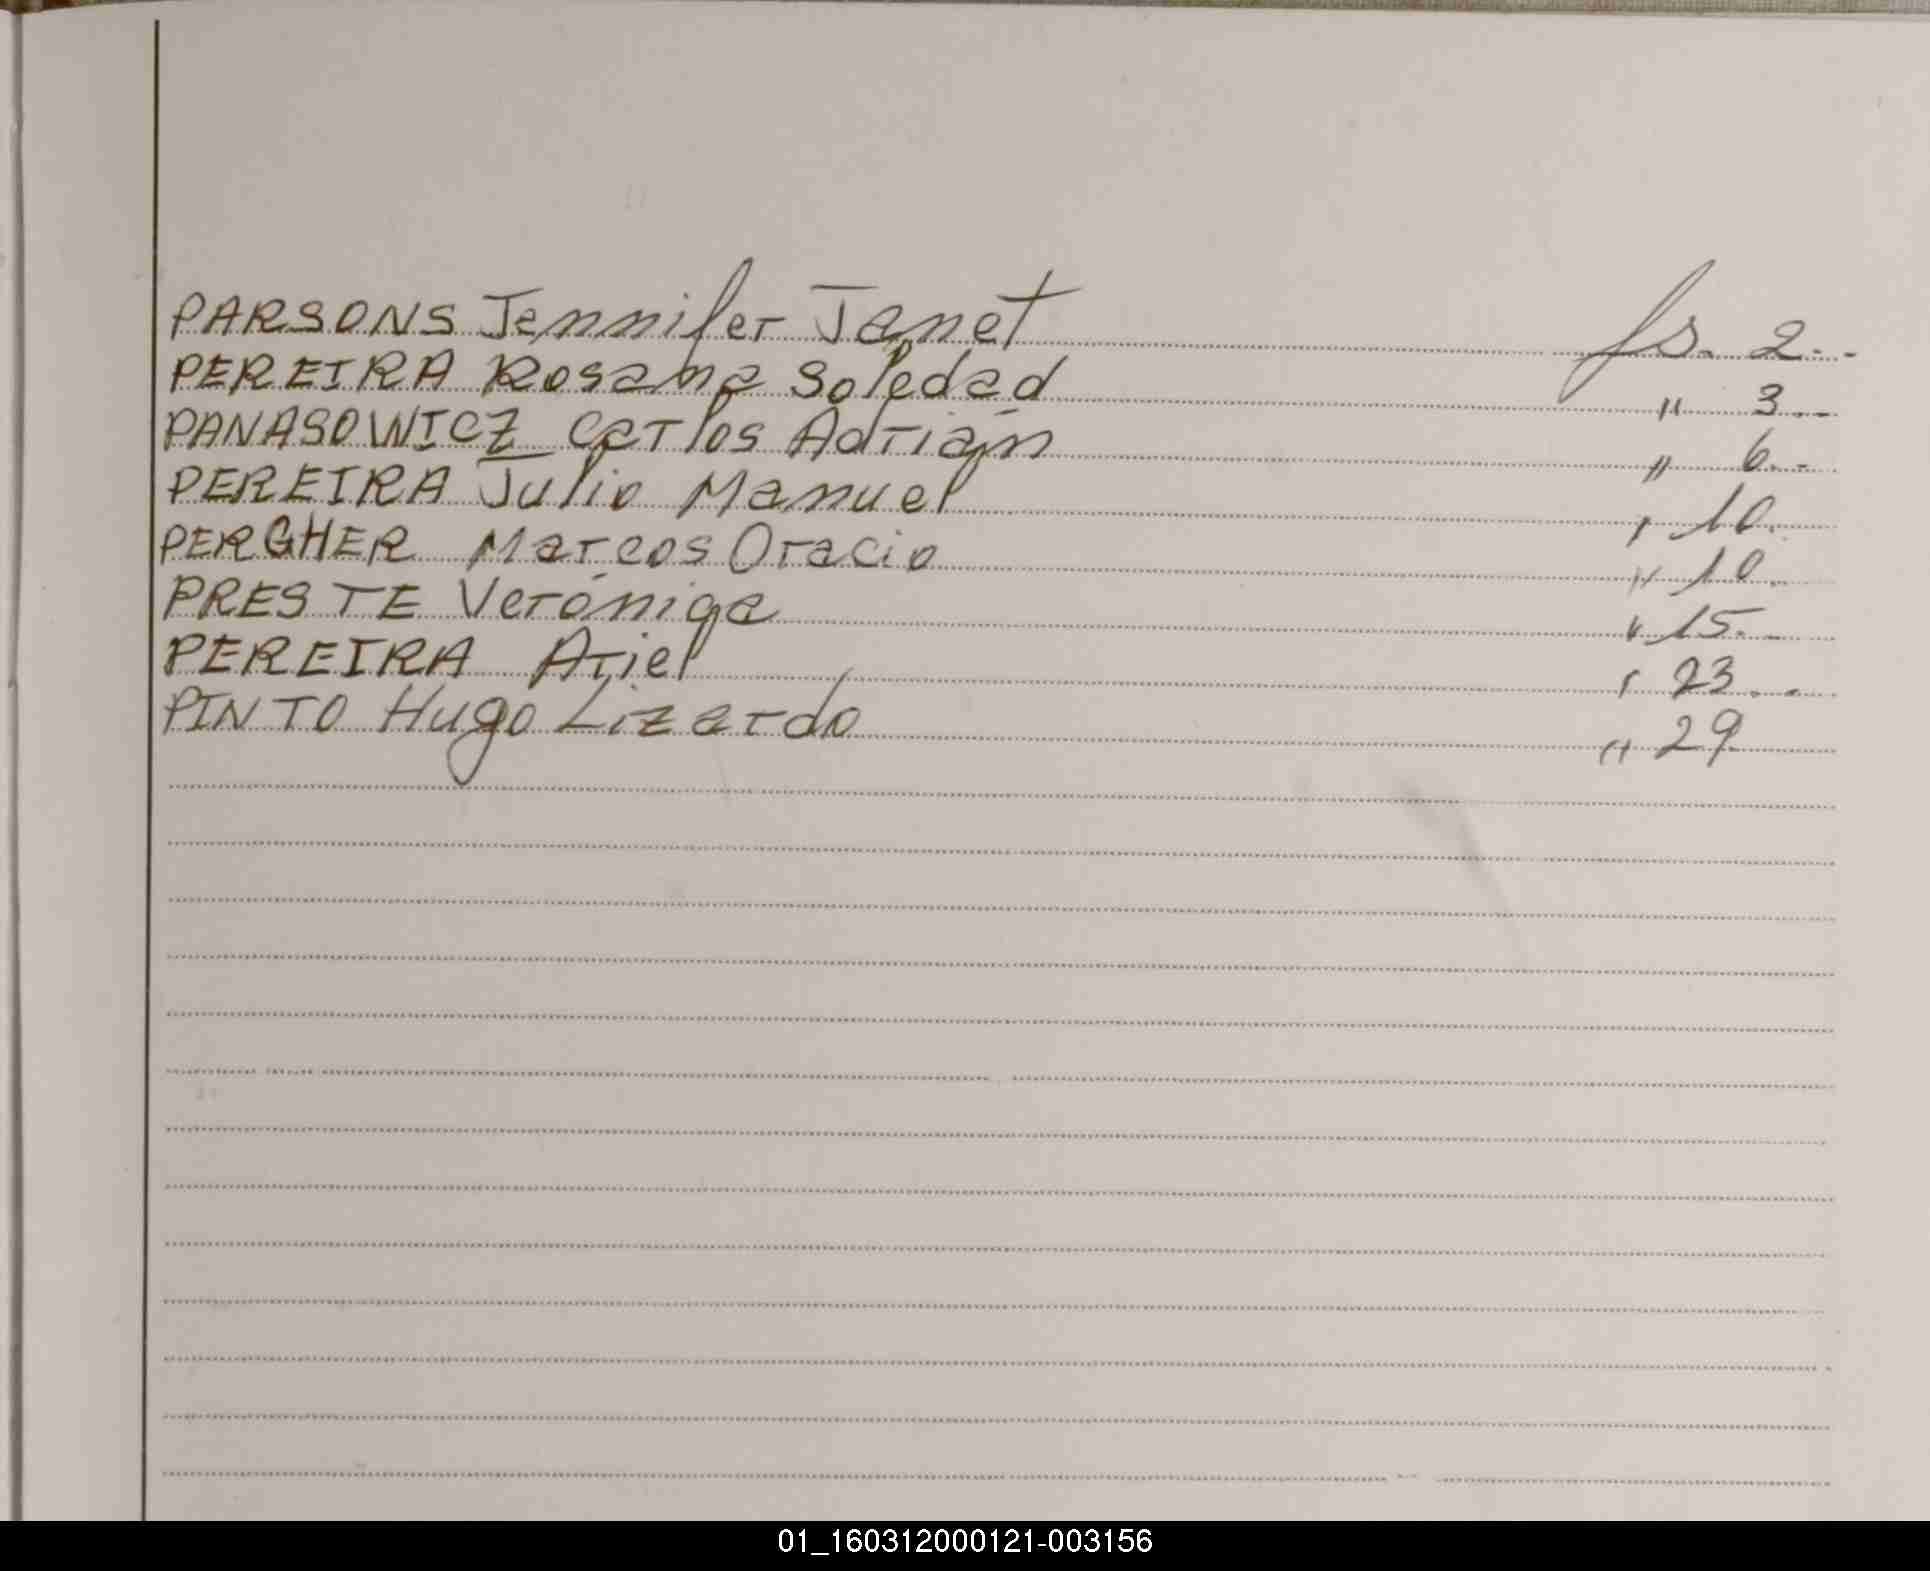 PARSONS Jennifer Janet fs. 2.-
PEREIRA Rosana Soledad " 3.-
PANASOWICZ Carlos Adrián " 6.-
PEREIRA Julio Manuel " 10.
PERGHER Marcos Oracio " 10.
PRESTE Verónica " 15.-
PEREIRA Ariel " 23.-
PINTO Hugo Lizardo " 29
01_160312000121-003156